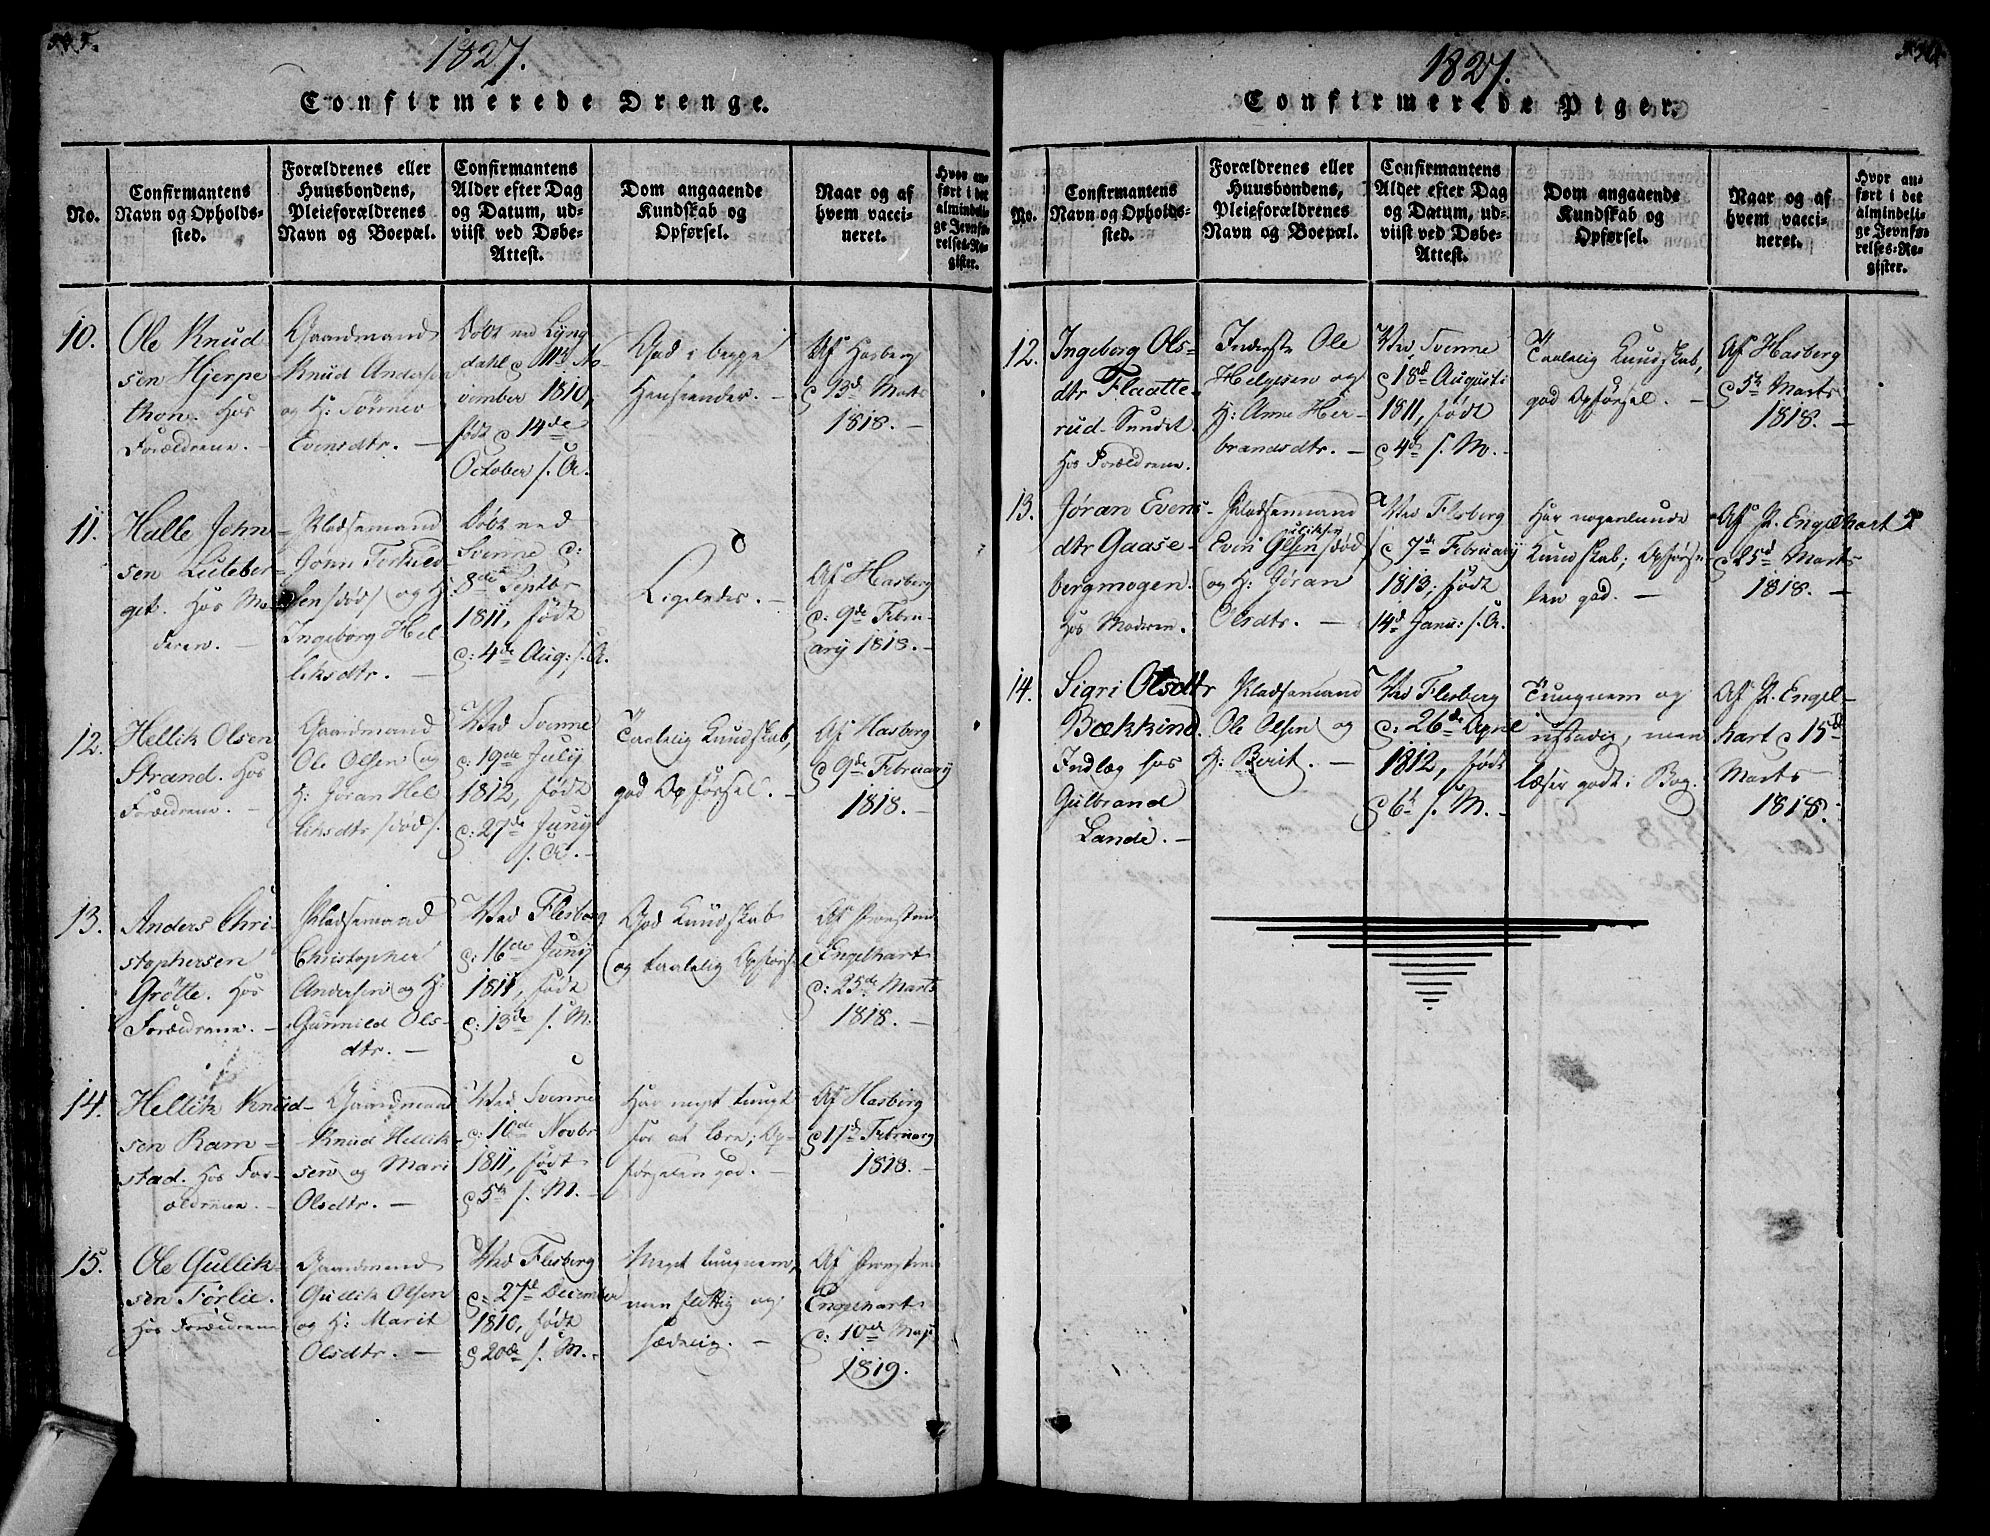 1827.
Confirmerede Drenge.
No.
Confirmantens
Navn og Opholds-
sted.
Forældrenes eller
Huusbondens,
Pleieforældrenes
Navn og Boepæl.
Confirmantens
Alder efter Dag
og Datum, ud-
viist ved Døbe-
Attest.
Dom angaaende
Kundskab og
Opførsel.
Naar og af
hvem vacci-
neret.
Hvor an-
ført i det
almindeli-
ge Jevnfø-
relses-Re-
gister.
10.
Ole Knud
sen Hjerpe
thon. Hos
Forældrene. –
Gaardmand
Knud Anders
og H: Tønnev
Evensdtr. –
Døbt ved Lÿng
dahl 11te No-
vember 1810,
født 14de
October s. A.
God i begge
Henseender. –
Af Hasberg
13de Marts
1818. –
11.
Halle John-
sen Luteber-
get. Hos Mo-
deren. –
Pladsemand
John Torkild
sen (død) og H:
Ingeborg Hel
liksdtr. –
Døbt ved
Svenne d:
8de Septbr
1811, født
d: 4de Aug: s. A.
Ligeledes. –
Af Hasberg
d: 9de Febru-
ary 1818. –
12.
Hellik Olsen
Strand. Hos
Forældrene. –
Gaardmand
Ole Olsen og
H: Jøran Hel
liksdtr (død).
Ved Svenne
d: 19de Julÿ
1812, født
d: 27de Junÿ
s. A. –
Taalelig Kundskab,
god Opførsel. –
Af Hasberg
d 9de February
1818. –
13.
Anders Chri-
stophersen
Grötte. Hos
Forældrene. –
Pladsemand
Christopher
Andersen og H:
Gunnild Ols-
dtr. –
Ved Flesberg
d: 16de Junÿ
1811, født
d: 13de s. M.
God Kundskab
og taalelig Opførsel
Af Præsten
Engelhart
d: 25de Marts
1818. –
14.
Hellik Knud-
sen Ram-
stad. Hos For-
ældrene. –
Gaardmand
Knud Hellik-
sen og Mari
Olsdtr. –
Ved Svenne
d: 10de Novbr
1811, født
d 5te s. M. –
Har meget tungt
for at lære; Op-
førselen god. –
Af Hasberg
d 17de February
1818. –
15.
Ole Gullik-
sen Førlie.
Hos Forældrene
Gaardmand
Gullik Olsen
og H: Marit
Olsdtr. –
Ved Flesberg
d: 27de December
1810, født
d 20de s. M. –
Meget tungnem,
men flittig og
sædelig. –
Af Præsten
Engelhart
d: 10de Maji
1819.
1827.
Confirmerede Piger.
No.
Confirmantens
Navn og Opholds-
sted.
Forældrenes eller
Huusbondens,
Pleieforældrenes
Navn og Boepæl.
Confirmantens
Alder efter Dag
og Datum, ud-
viist ved Døbe-
Attest.
Dom angaaende
Kundskab og
Opførsel.
Naar og af
hvem vacci-
neret.
Hvor an-
ført i det
almindeli-
ge Jevnfø-
relses-Re-
gister.
12.
Ingeborg Ols-
dtr Flaatte-
rud-Sundet.
Hos Forældrene.
Inderste Ole
Helgesen og
H: Anne Her-
brandsdtr. –
Ved Svenne
d 18de Augusti
1811, født
d 4de s. M. –
Taalelig Kundskab,
god Opførsel. –
Af Hasberg
d 5te Marts
1818. –
13.
Jøran Evens-
dtr Gaase-
bergmogen.
Hos Moderen.
Pladsemand
Even Olsen (død)
og H: Jøran
Olsdtr. –
Ved Flesberg
d 7de February
1813, født
14de Janu: s. A.
Har nogenlunde
Kundskab; Opførse-
len god. –
Af P. Engelhart
d 25de Marts
1818. –
14.
Sigri Olsdtr
Bækkind.
Indlæg hos
Gulbrand
Lande. –
Pladsemand
Ole Olsen og
H: Berit. –
Ved Flesberg
d: 26de April
1812, født
d 6te s. M. –
Tungnem og
ustadig, men
læser godt i Bog.
Af P. Engel-
hart d 15de
Marts
1818.